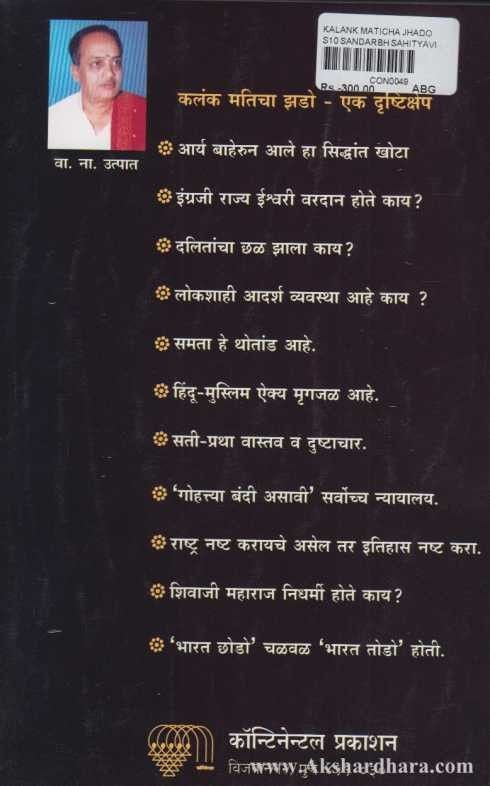 KALANK MATICHA JHADO
S10 SANDARBH SAHITYAVI
CON0049
Rs.-300.00 ABG
वा. ना. उत्पात
कलंक मतिचा झडो - एक दृष्टिक्षेप
आर्य बाहेरुन आले हा सिद्धांत खोटा
इंग्रजी राज्य ईश्वरी वरदान होते काय?
दलितांचा छळ झाला काय?
लोकशाही आदर्श व्यवस्था आहे काय ?
समता हे थोतांड आहे.
हिंदू-मुस्लिम ऐक्य मृगजळ आहे.
सती-प्रथा वास्तव व दुष्टाचार.
'गोहत्त्या बंदी असावी' सर्वोच्च न्यायालय.
राष्ट्र नष्ट करायचे असेल तर इतिहास नष्ट करा.
शिवाजी महाराज निधर्मी होते काय?
'भारत छोडो' चळवळ 'भारत तोडो' होती.
कॉन्टिनेन्टल प्रकाशन
www.Akshardhara.com